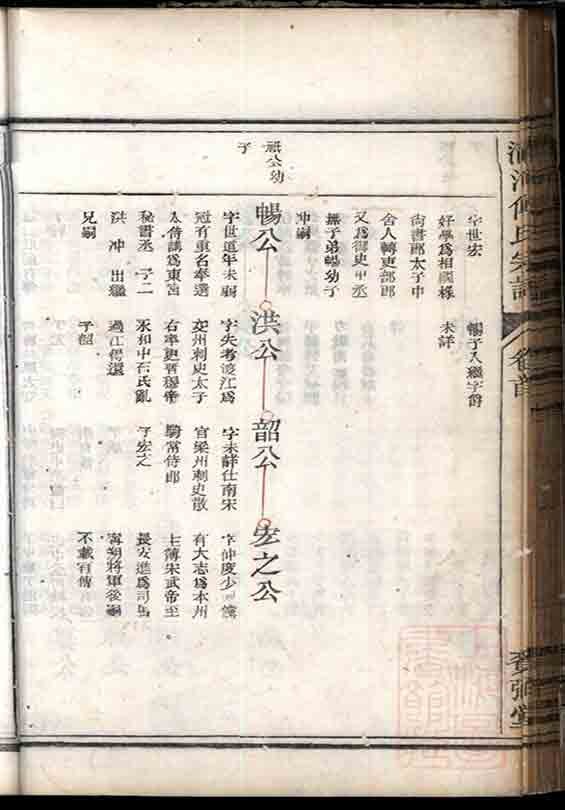 河傅氏宗譜
卷首
字世宏
好學爲相國掾
尚書郎太子中
舍人轉吏部郎
又爲御史中丞
無子弟暢幼子
冲嗣
暢子入繼字爵
未詳
祗公幼
子
暢公
洪公
韶公
宏之公
字世道年未弱
冠有重名奉選
入侍講爲東宮
秘書丞 子二
洪 冲 出繼
兄嗣
字失考渡江爲
交州刺史太子
右率更晉穆帝
永和中石氏亂
過江得還
子韶
字未詳仕南宋
官梁州刺史散
騎常侍郎
子宏之
字仲度少儻
有大志爲本州
主簿宋武帝至
長安進爲司馬
寧朔將軍後嗣
不載有傳
堂